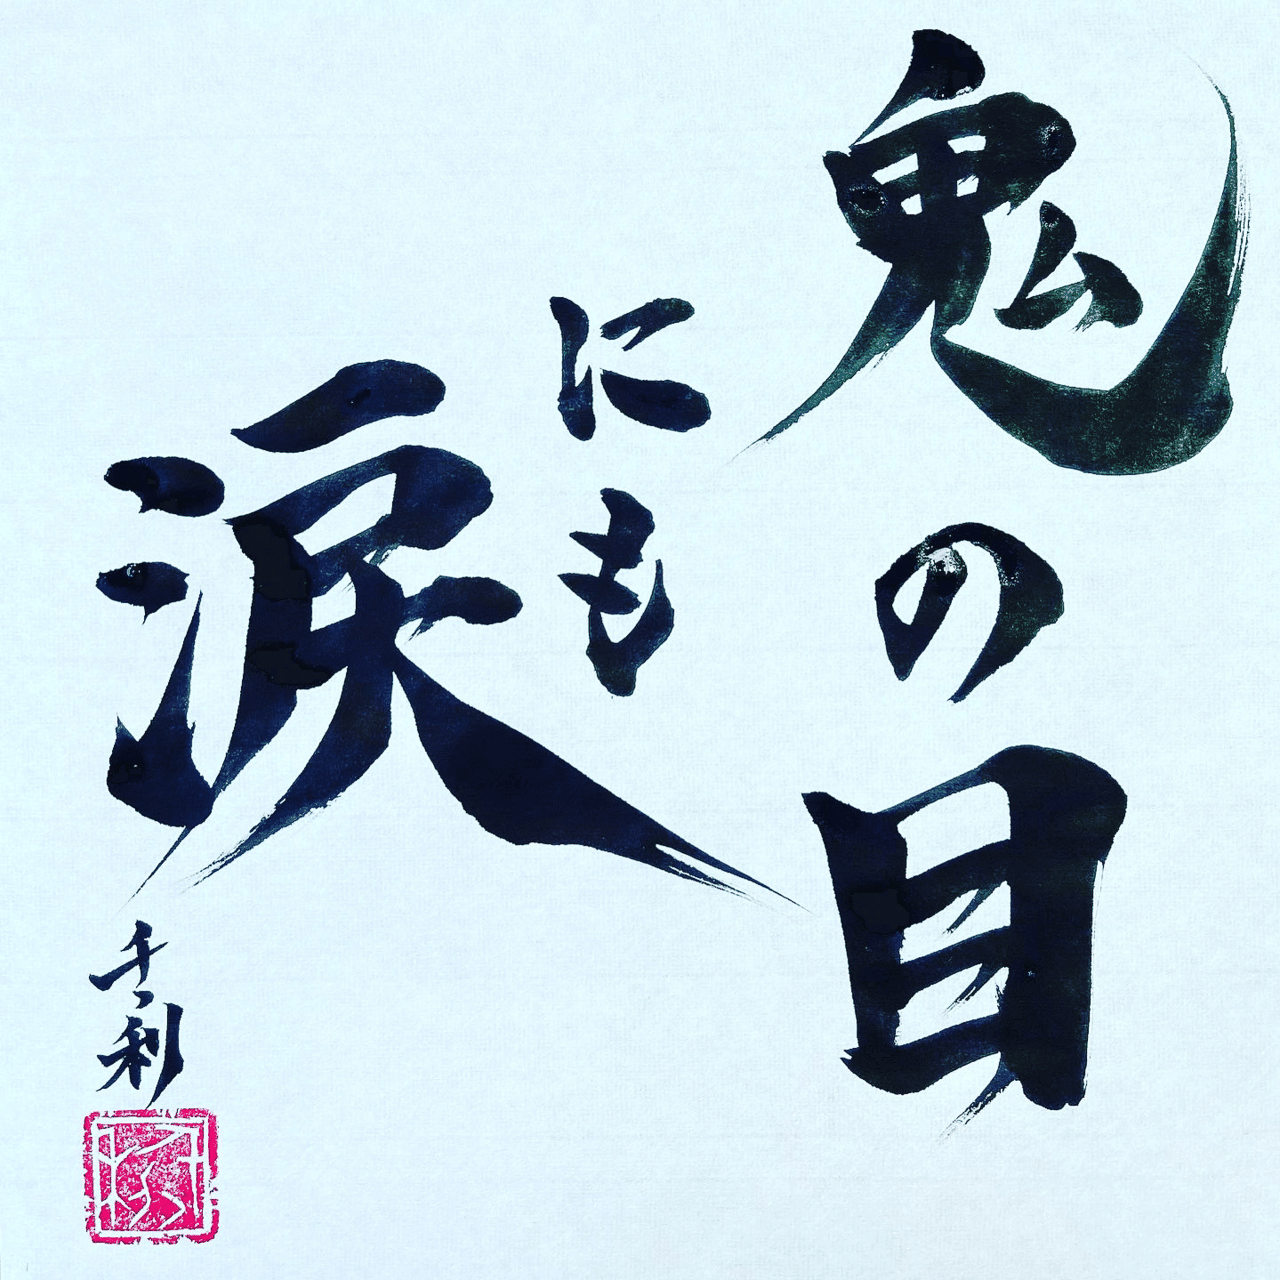 鬼の目
にも
涙
千利